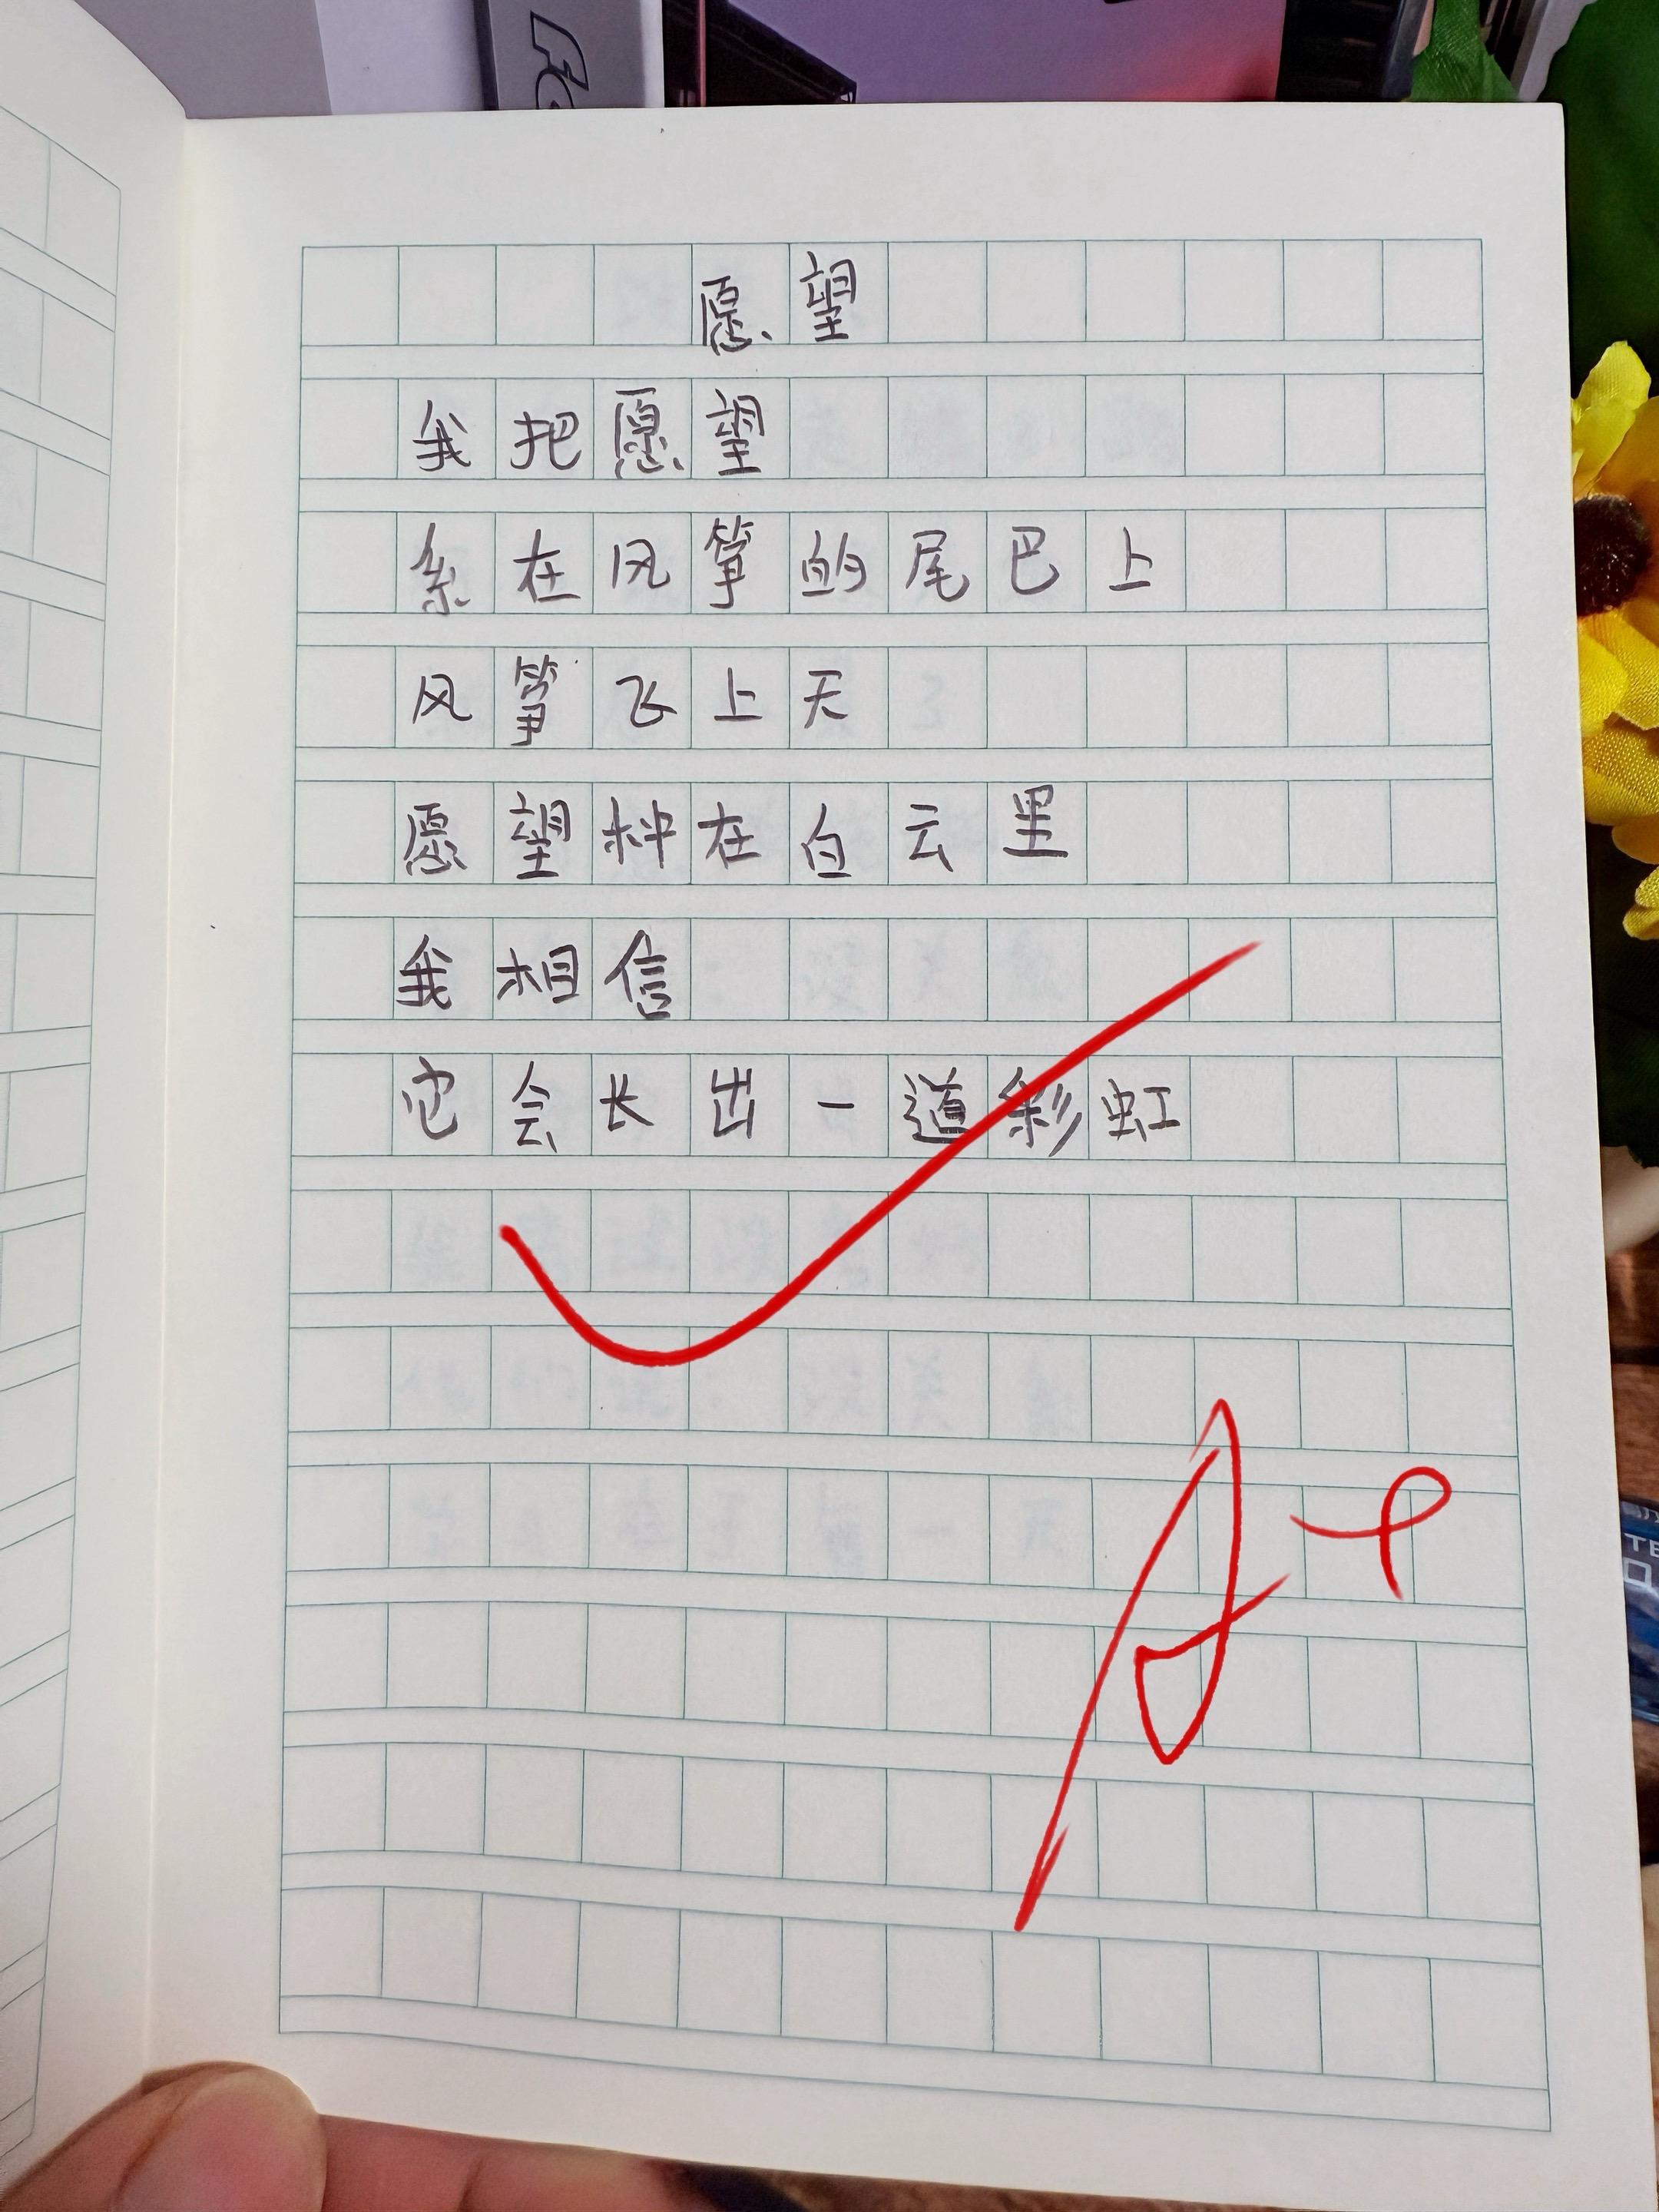 愿望
我把愿望
系在风筝的尾巴上
风筝飞上天
愿望种在白云里
我相信
它会长出一道彩虹
A+